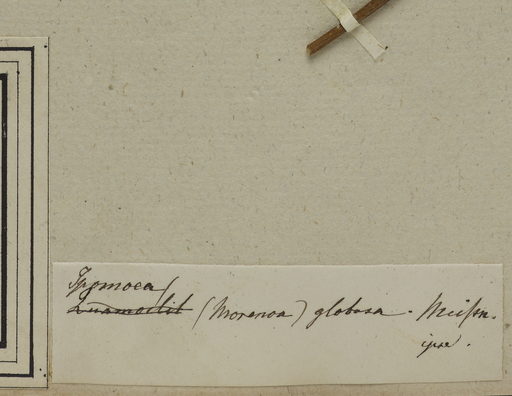 Ipomoea
Quamoclit (Morenoa) globosa. Meisn.
ipse.